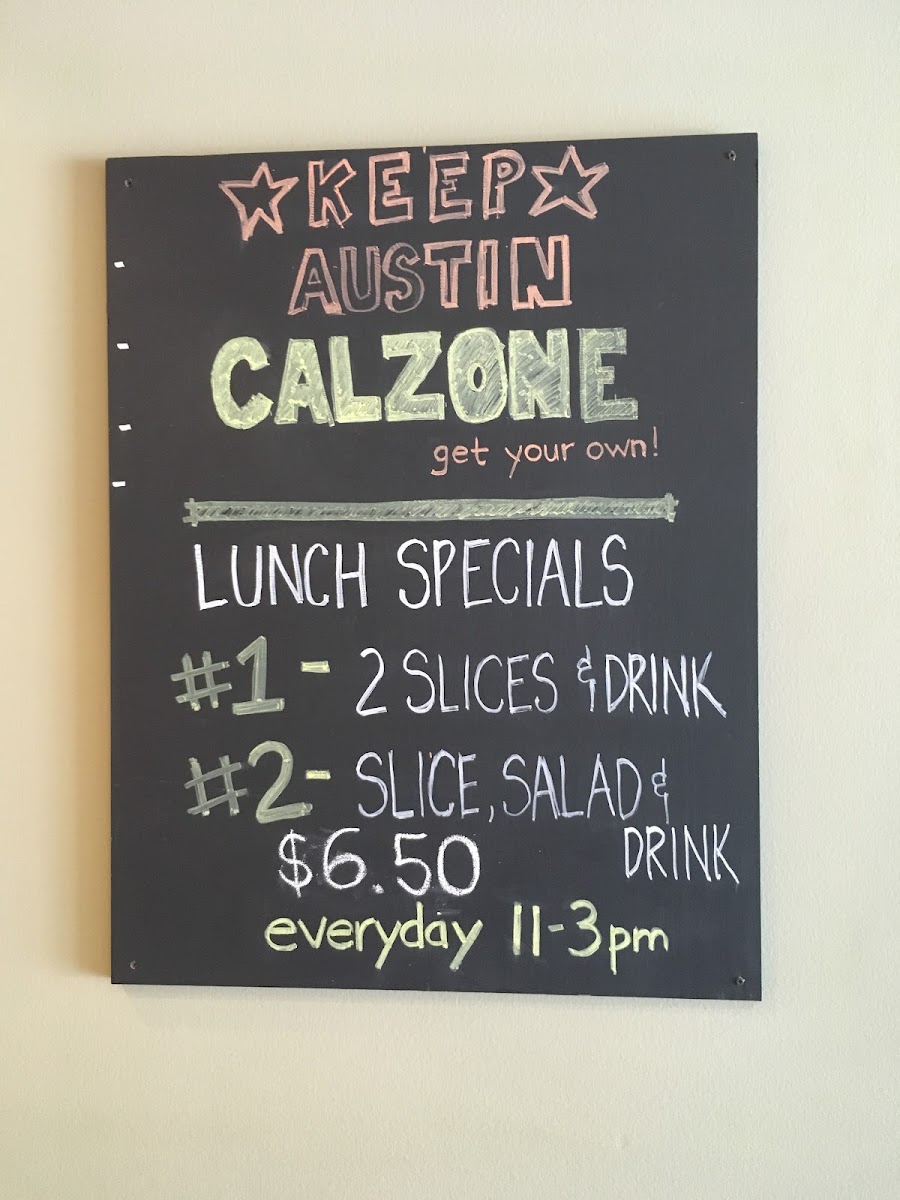 KEEP
AUSTIN
CALZONE
get your own!
LUNCH SPECIALS
#1 - 2 SLICES & DRINK
#2 - SLICE, SALAD &
DRINK
$6.50
everyday 11-3pm